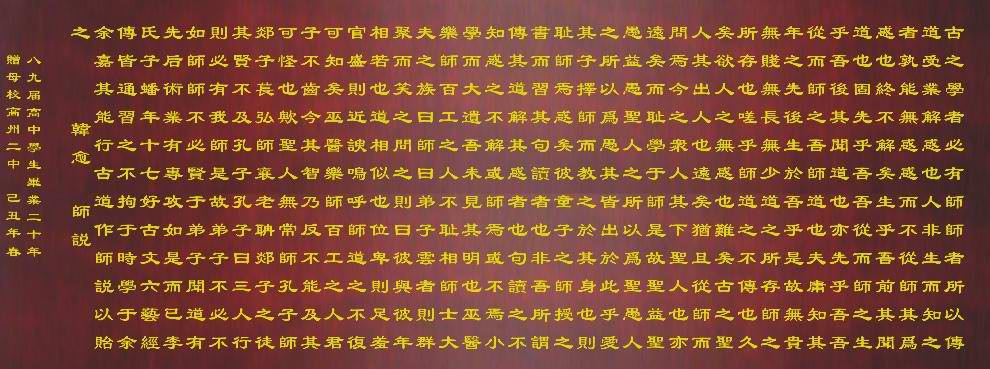 古之學者必有師師者所以傳
道受業解惑也人非生而知之
者孰能無惑惑而不從師其爲
惑也終不解矣生乎吾前其聞
道也固先乎吾吾從而師之生
乎吾後其聞道也亦先乎吾吾
從而師之吾師道也夫庸知其
年之先後生於吾乎是故無貴
無賤無長無少道之所存師之
所存也嗟乎師道之不傳也久
矣欲人之無惑也難矣古之聖
人其出人也遠矣猶且從師而
問焉今之衆人其下聖人也亦
遠矣而恥學于師是故聖益聖
愚益愚聖人之所以爲聖愚人
之所以爲愚其皆出於此乎愛
其子擇師而教之於其身也則
恥師焉惑矣彼童子之師授之
書而習其句讀者也非吾所謂
傳其道解其惑者也句讀之不
知惑之不解或師焉或不焉小
學而大遺吾未見其明也巫醫
樂師百工之人不恥相師士大
夫之族曰師曰弟子雲者則群
聚而笑之問之則曰彼與彼年
相若也道相似也位卑則足羞
官盛則近諛嗚呼師道之不復
可知矣巫醫樂師百工之人君
子不齒今其智乃反不能及其
可怪也歟聖人無常師孔子師
郯子萇弘師襄老聃郯子之徒
其賢不及孔子孔子曰三人行
則必有我師是故弟子不必不
如師師不必賢于弟子聞道有
先后術業有專攻如是而已李
氏子蟠年十七好古文六藝經
傳皆通習之不拘于時學于余
余嘉其能行古道作師説以貽
之 韓愈 師説
八九届高中學生畢業二十年
贈母校高州二中 己丑年春